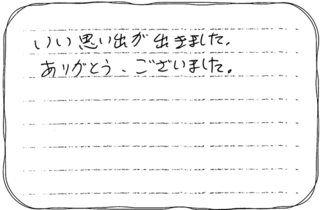 いい思い出が出きました.
ありがとう、ございました。